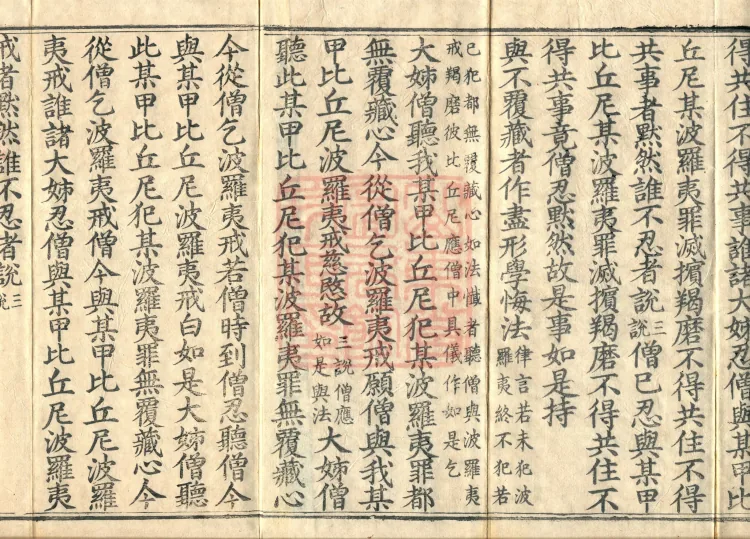 得共住不得共事誰諸大姊忍僧與某甲比
丘尼某波羅夷罪滅擯羯磨不得共住不得
共事者默然誰不忍者說三說僧已忍與某甲
比丘尼某波羅夷罪滅擯羯磨不得共住不
得共事竟僧忍默然故是事如是持
與不覆藏者作盡形學悔法律言若未犯波羅夷終不犯若
已犯都無覆藏心如法懺者聽僧與波羅夷
戒羯磨彼比丘尼應僧中具儀作如是乞
大姊僧聽我某甲比丘尼犯某波羅夷罪都
無覆藏心今從僧乞波羅夷戒願僧與我某
甲比丘尼波羅夷戒慈愍故三說僧應如是與法大姊僧
聽此某甲比丘尼犯某波羅夷罪無覆藏心
今從僧乞波羅夷戒若僧時到僧忍聽僧今
與某甲比丘尼波羅夷戒白如是大姊僧聽
此某甲比丘尼犯某波羅夷罪無覆藏心今
從僧乞波羅夷戒僧今與某甲比丘尼波羅
夷戒誰諸大姊忍僧與某甲比丘尼波羅夷
戒者默然誰不忍者說三說